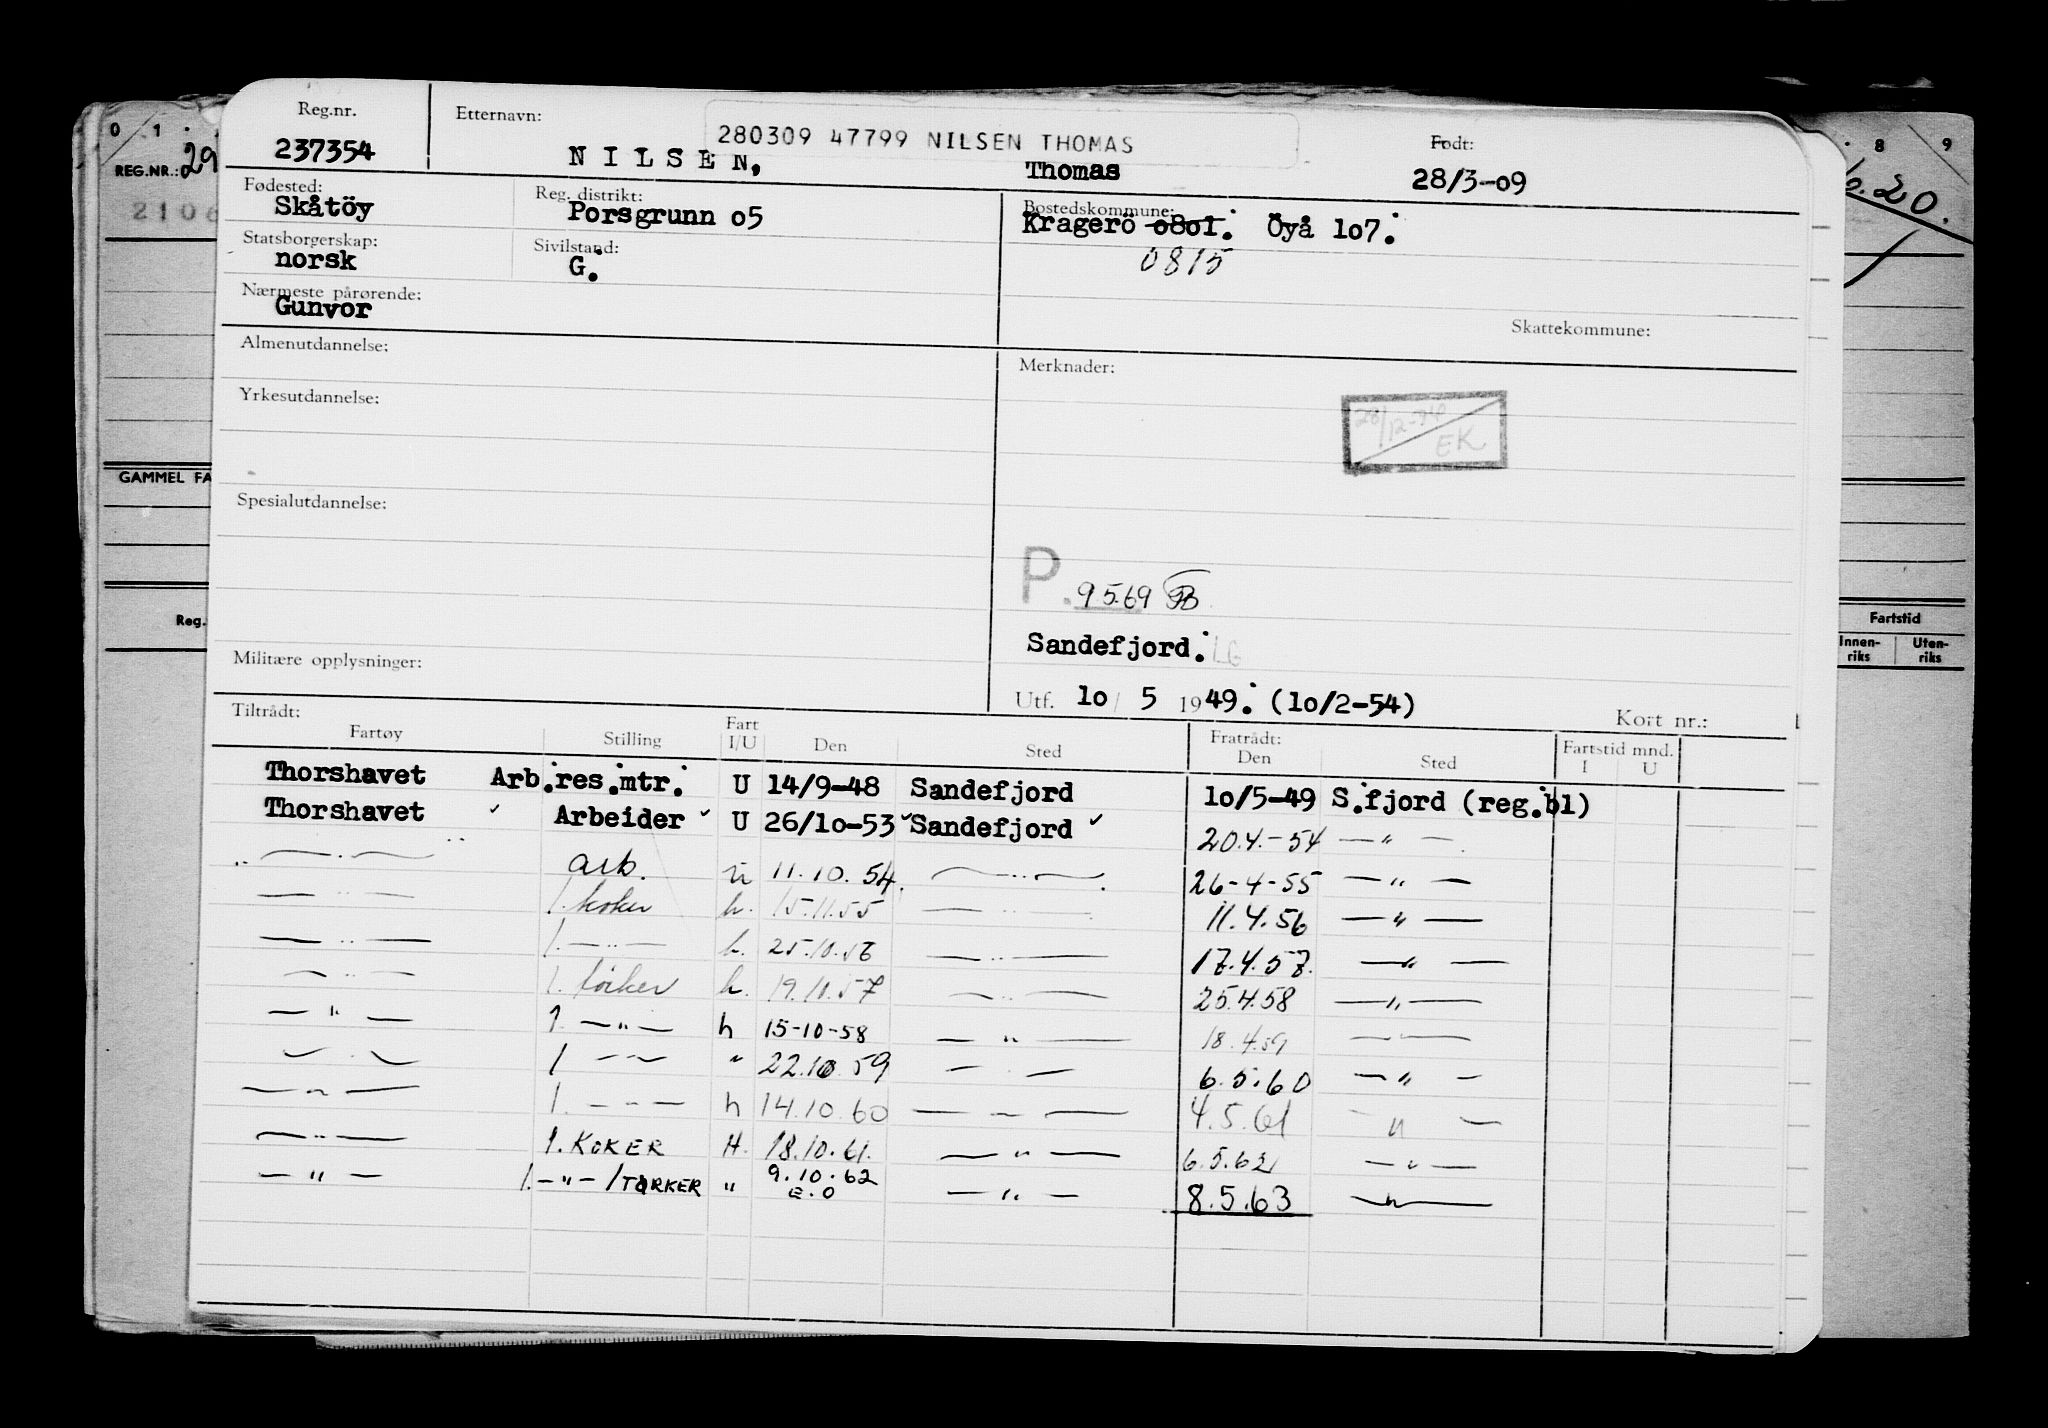 0 1
REG.NR.: 29
2106
GAMMEL FA
Reg.
8 9
20.
Fartstid
Innen-riks Uten-riks
Reg.nr. Etternavn: 280309 47799 NILSEN THOMAS Født:
237354 NILSEN, Thomas 28/3-09
Fødested: Reg. distrikt: Bostedskommune:
Skåtöy Porsgrunn o5 Kragerö o8o1. Öyå lo7.
Statsborgerskap: Sivilstand: 0815
norsk G.
Nærmeste pårørende:
Gunvor
Skattekommune:
Almenutdannelse: Merknader:
Yrkesutdannelse:
28/12-
EK
Spesialutdannelse:
P. 9.5.69
Sandefjord. LG
Militære opplysninger:
Utf. lo / 5 1949. (lo/2-54)
Kort nr.:
Tiltrådt: Fratrådt: Fartstid mnd.
Fartøy Stilling Fart I/U Den Sted Den Sted I U
Thorshavet Arb.res.mtr. U 14/9-48 Sandefjord lo/5-49 S.fjord (reg.bl)
Thorshavet ✓ Arbeider ✓ U 26/lo-53 ✓ Sandefjord ✓ 20.4.-54 — " —
— " — arb. u 11.10.54. — " — 26-4-55 — " —
— " — 1. koker h. 15.11.55 — " — 11.4.56 — " —
— " — 1. — " — h. 25.10.56 — " — 17.4.57. — " —
— " — 1. tørker h. 19.10.57 — " — 25.4.58 — " —
— " — 1. — " — h 15-10-58 — " — 18.4.59 — " —
— " — 1 — " — " 22.10.59 — " — 6.5.60 — " —
— " — 1. — " — h 14.10.60 — " — 4.5.61 — " —
— " — 1. KOKER H. 18.10.61. — " — 6.5.62 — " —
— " — 1. — " — /TØRKER " 9.10.62 — " — 8.5.63 — " —
E.O